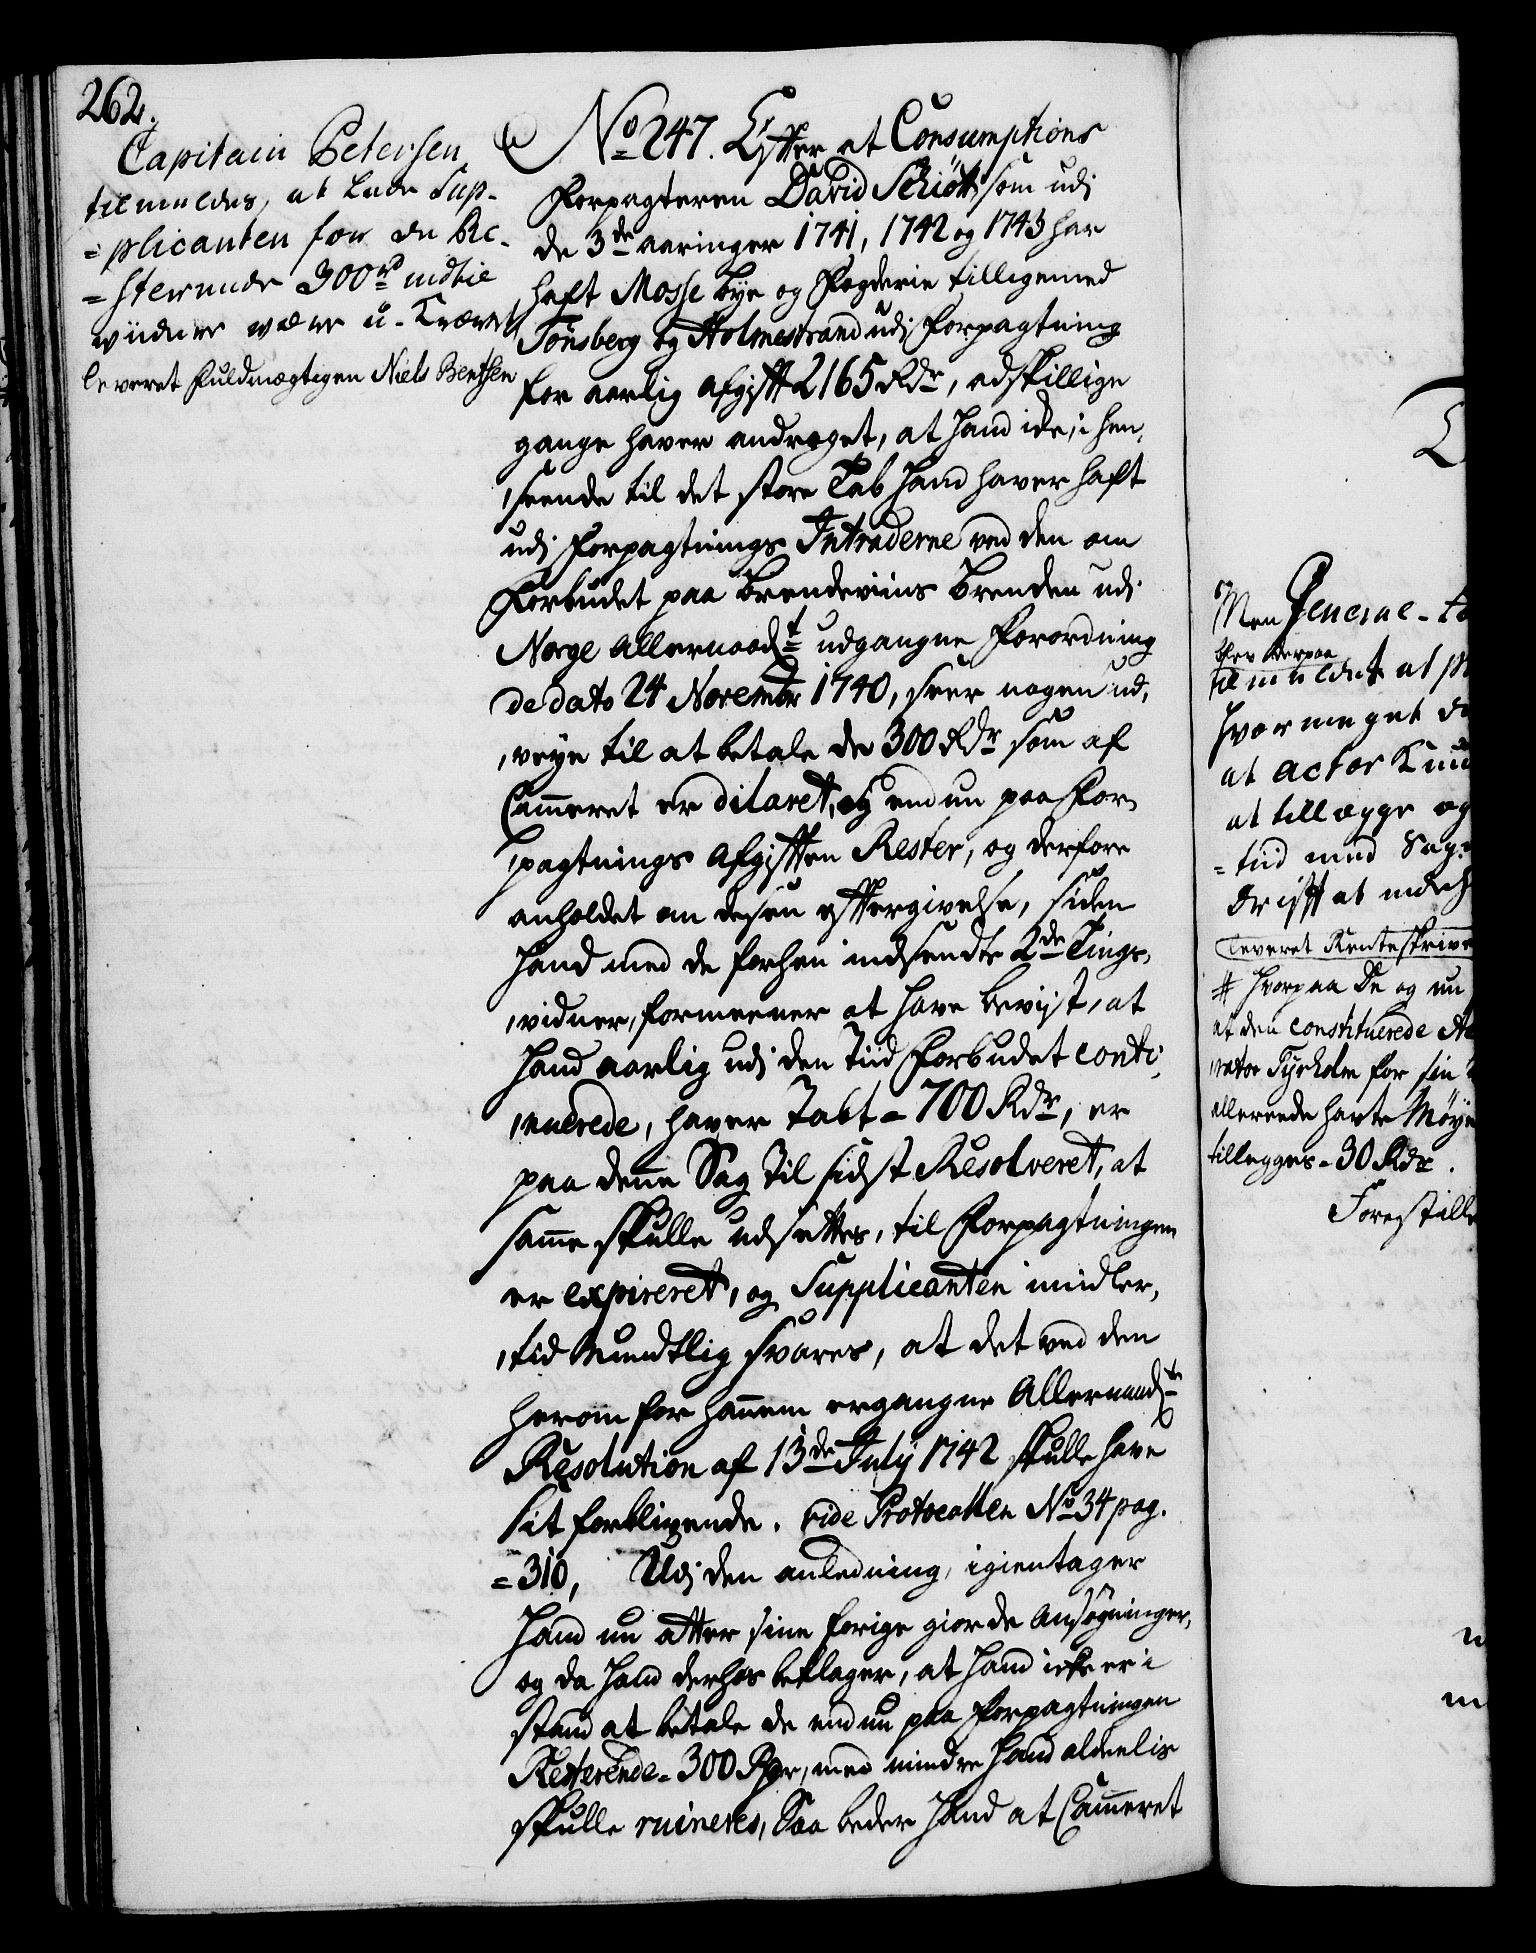 262.
Capitain Petersen
tilmeldes, at lade Sup-
=plicanten for de Re-
=sterende 300rd indtil
viidere være u-Krævet
leveret fuldmægtigen Niels Bentzen
No 247. Efter at Consumptions
Forpagteren David Schiött som udj
de 3de aaringer 1741, 1742 og 1743 har
haft Mosse bye og Fogderie tilligemed
Tonsberg og Holmestrand udj forpagtning
for aarlig afgift 2165 Rdr, adskillige
gange haver andraget, at hand icke, i hen,
,seende til det store Tab hand haver haft
udj forpagtnings Intraderne ved den om
Forbudet paa brendeviins brenden udj
Norge allernaadt udgangne forordning
de dato 24 Novembr 1740, seer nogen ud,
,veye til at betale de 300 Rdr som af
Cammeret er dilaret, og endnu paa For,
,pagtnings afgiften Rester, og derfore
anholdet om dessen efftergivelse, siden
hand med de forhen indsendte 2de Tings,
,vidner, formeener at have beviist, at
hand aarlig udj den Tiid Forbudet conti,
,nuerede, haver Tabt = 700 Rdr, er
paa denne Sag til sidst Resolveret, at
samme skulle udsættes, til Forpagtningen
er expireret, og Supplicanten imidler,
,tid mundtlig svares, at det ved den
herom for hannem ergangne Allernaadste
Resolution af 13de July 1742 skulle have
sit forblivende. vide Protocollen No 34 pag.
=310, Udj den anledning, igientager
hand nu atter sine forige giorde ansøgninger,
og da hand derhos beklager, at hand icke er i
stand at betale de endnu paa forpagtningen
Resterende = 300 Rdr, med mindre hand aldeelis
skulle ruineres, Saa beder hand at Cammeret
Men General-to
blev derpaa
tilmeldet at
hvor meget
at actor Kun
at tillægge og
=tiid med Sag
drift at
leveret Renteskrive
# hvorpaa De og nu
at den constituerede
,rator Tyrholm for sin
allereede hafte Møye
tillegges = 30 Rdr.
Forestille